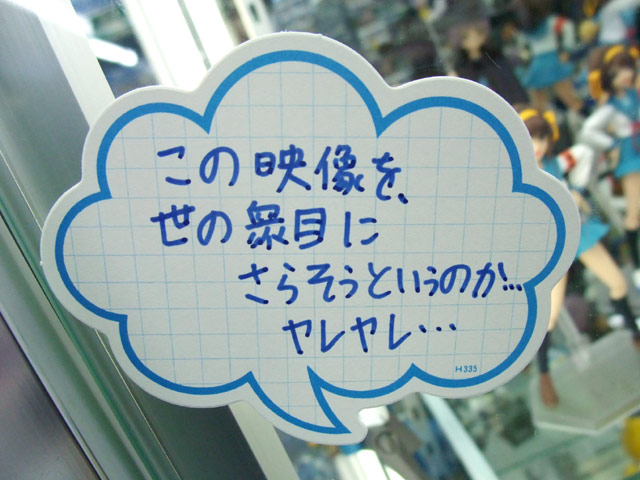 この映像を、
世の衆目に
さらそうというのか!..
ヤレヤレ…
H335